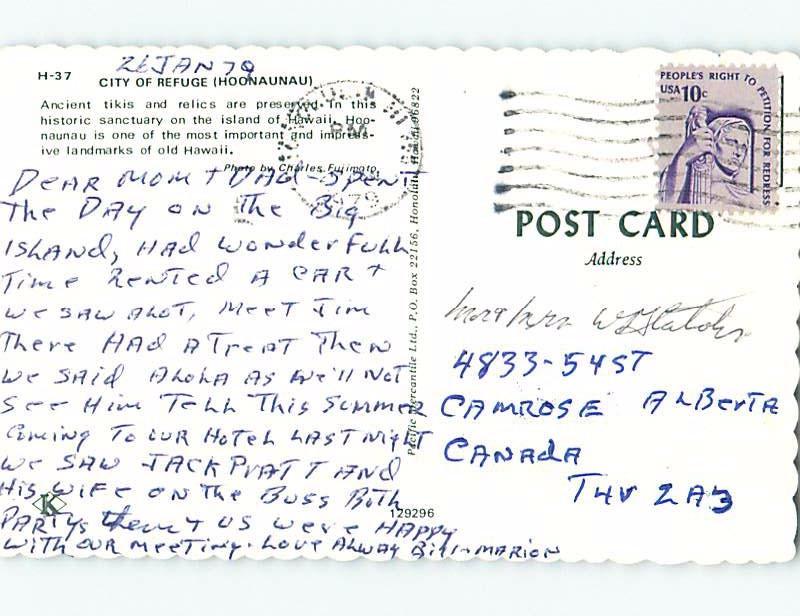 26 JAN 79
H-37 CITY OF REFUGE (HOONAUNAU)
Ancient tikis and relics are preserved in this
historic sanctuary on the island of Hawaii. Hoo-
naunau is one of the most important and impress-
ive landmarks of old Hawaii.
Photo by Charles Fujimoto
DEAR MOM + DAD - SPENT
The DAY ON The Big
ISLAND, HAD WONDERFULL
Time RENTED A CAR +
We SAW ALOT, MeeT Jim
There HAD A TREAT Then
We SAID ALOHA AS We'll NoT
See Him Till This Summer
Coming To OUR HoTeL LAST NighT
We SAW JACK PYATT AND
His WiFe ON The BUSS BoTh
PARTYS them + US WeRe HAPPY
WITH OUR MeeTiNg. Love ALWAY Bill-MARION
K
129296
Pacific Mercantile Ltd., P.O. Box 22156, Honolulu, Hawaii 96822
PEOPLE'S RIGHT TO PETITION FOR REDRESS
USA 10c
POST CARD
Address
4833-54 ST
CAMROSE ALBERTA
CANADA
T4V 2A3